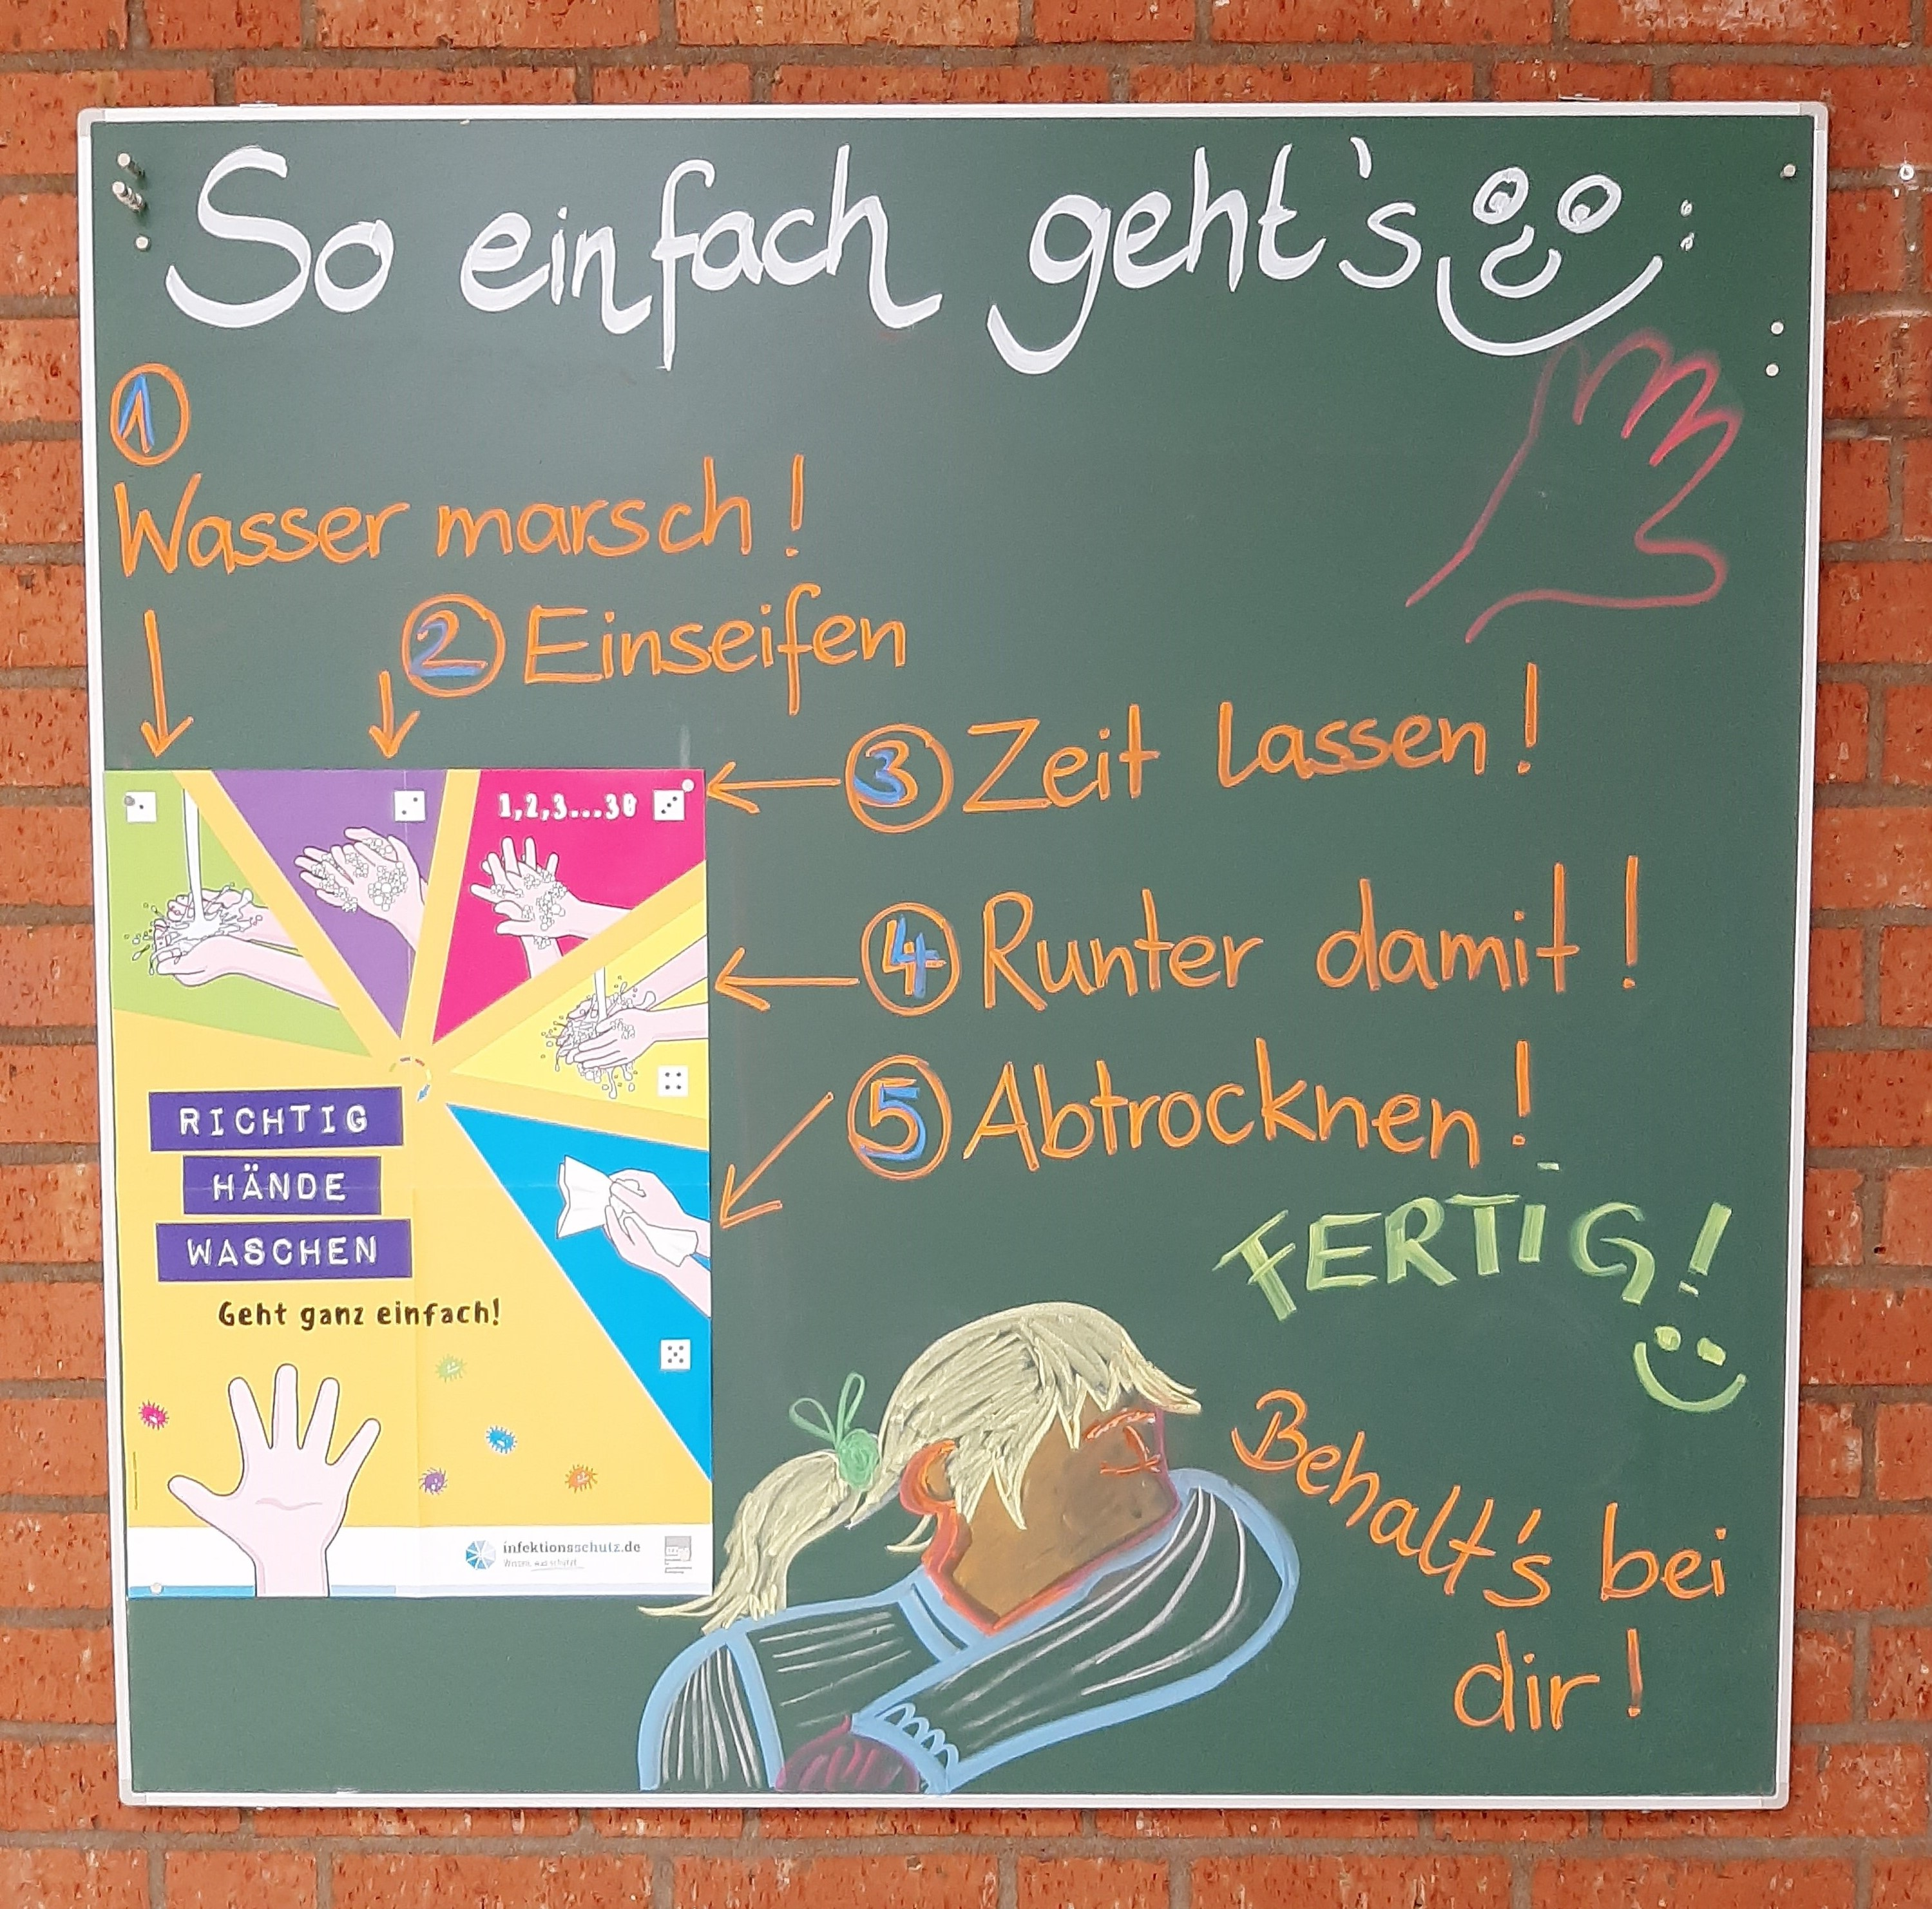 So einfach geht's
1
Wasser marsch!
2 Einseifen
3 Zeit lassen!
4 Runter damit!
5 Abtrocknen!
FERTIG!
Behalt's bei
dir!
1,2,3...30
RICHTIG
HÄNDE
WASCHEN
Geht ganz einfach!
infektionsschutz.de